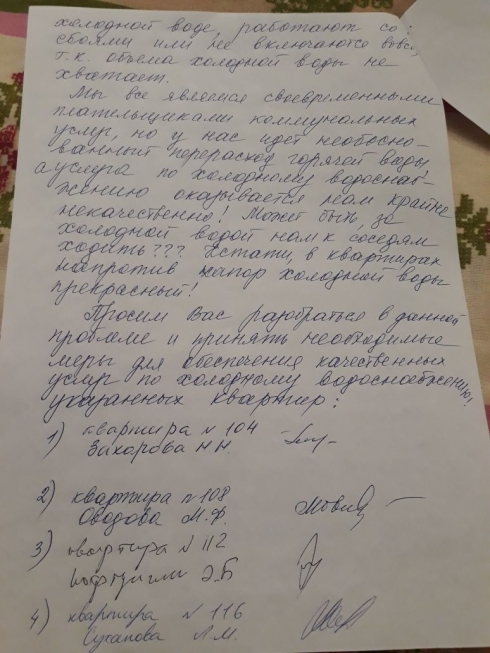 холодной воде, работают со
сбоями или не включаются вовсе,
т.к. объема холодной воды не
хватает.
Мы все являемся своевременными
плательщиками коммунальных
услуг, но у нас идет необосно-
ванный перерасход горячей воды
а услуга по холодному водоснаб-
жению оказывается нам крайне
некачественно! Может быть, за
холодной водой нам к соседям
ходить??? Кстати, в квартирах
напротив напор холодной воды
прекрасный!
Просим Вас разобраться в данной
проблеме и принять необходимые
меры для обеспечения качественных
услуг по холодному водоснабжению
указанных квартир:
1) квартира N 104
Захарова Н.Н.
2) квартира N 108
Оводова М.Ф.
3) квартира N 112
Э.Б
4) квартира N 116
Суханова Л.М.